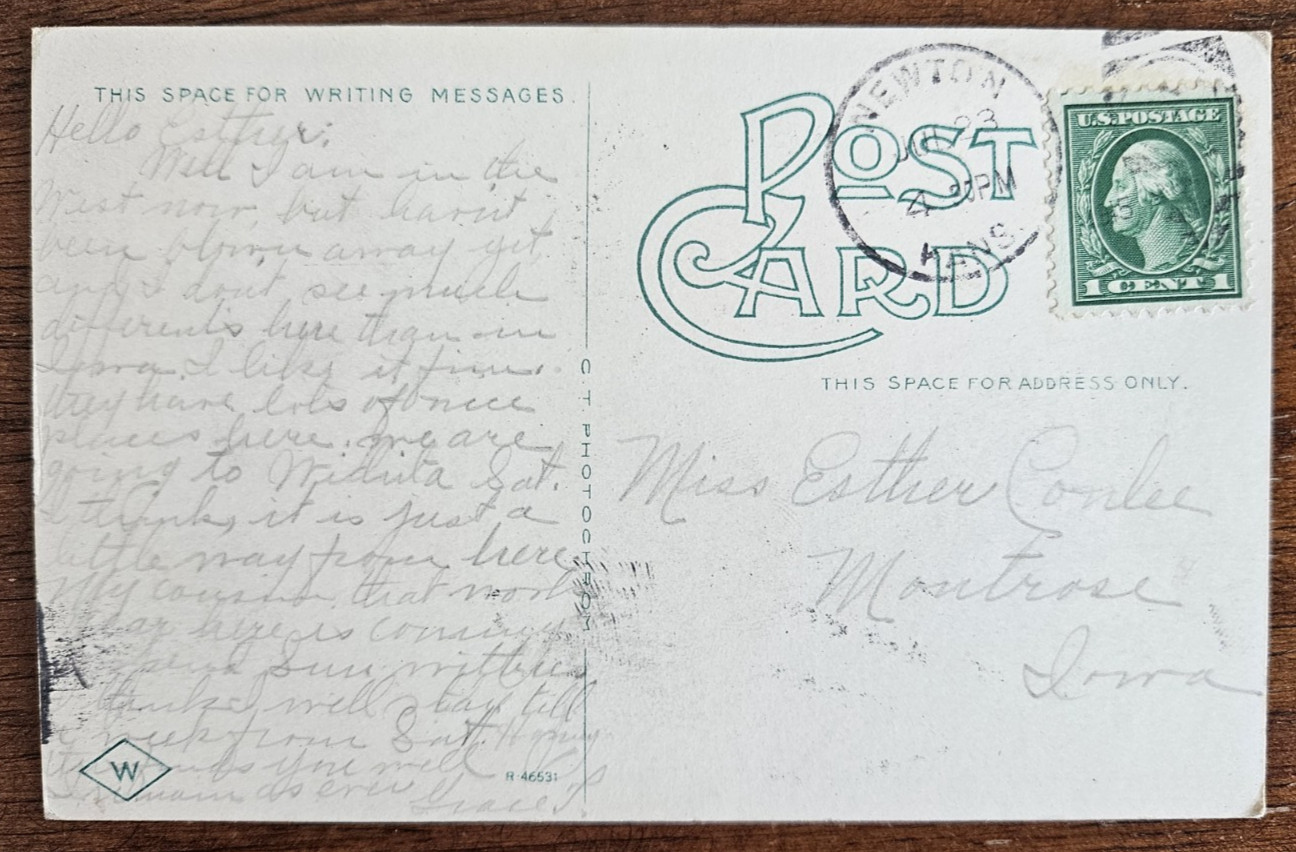 THIS SPACE FOR WRITING MESSAGES.
Hello Esther:
Well I am in the
West now but havnt
been blown away yet
and I dont see much
differents here than in
Iowa I like it fine.
they have lots of nice
places here. we are
going to Wichita Sat.
I think it is just a
little way from here
My cousin that
here is coming
Sun with us
I think well stay till
a week from Sat.
you well
as ever Grace
W
R-46531
C. T. PHOTOCHROM
POST
CARD
NEWTON
JUL 23
4 30PM
KANS.
U.S. POSTAGE
1 CENT 1
THIS SPACE FOR ADDRESS ONLY.
Miss Esther Conlee
Montrose
Iowa